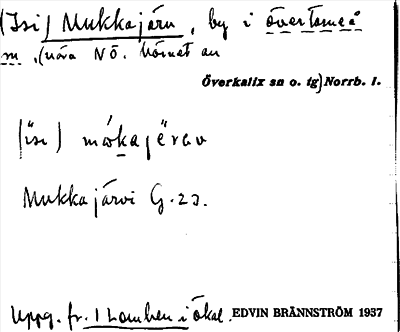 (Isi) Mukkajärv, by i övertorneå
m, (nära NÖ. hörnet av
Överkalix sn o. tg) Norrb. l.
(ìsi)
Mukkajärvi G. 23.
Uppg. fr. Lomben i Ökal. EDVIN BRÄNNSTRÖM 1937